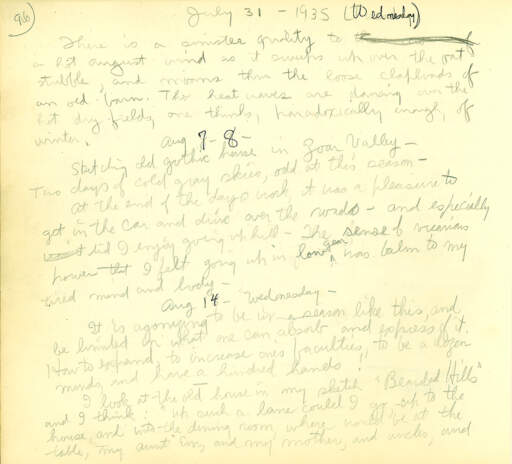 96
July 31 - 1935 (Wednesday)
There is a sinister quality to
a hot August wind as it sweeps up over the oat
stubble, and moans thru the loose clapboards of
an old barn. Tho heat waves are dancing over the
hot dry fields, one thinks, paradoxically enough, of
winter.
Aug 7-8-
Sketching old gothic house in Zoar Valley -
Two days of cold gray skies, odd at this season -
At the end of the days work it was a pleasure to
get in the car and drive over the roads - and especially
did I enjoy going up hill - The sense of vicarious
power that I felt going up in low gear has balm to my
tired mind and body -
Aug 14 - Wednesday -
It is agonizing to be in a season like this, and
be limited in what one can absorb and express of it.
How to expand, to increase ones faculties, to be a dozen
minds, and have a hundred hands!
I look at the old house in my sketch "Bearded Hills"
and I think: "Up such a lane could I go - up to the
house, and into the dining room, where would be at the
table, my aunt and my mother, and uncles, and